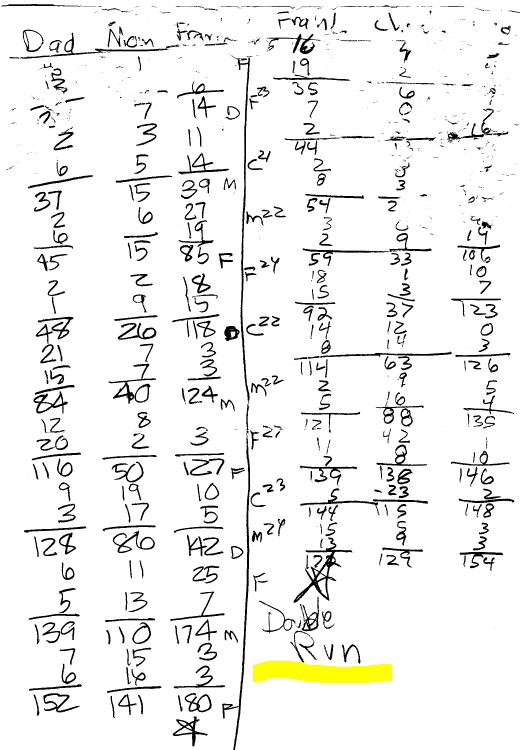 Dad Mom Fran
1
6
7 14 D
2 3 11
6 5 14
37 15 39 M
2 6 27
6 19
45 15 85 F
2 2 18
1 9 15
48 26 118 D
21 7 3
15 7 3
84 40 124 M
12 8
20 2 3
116 50 127 F
9 19 10
3 17 5
128 86 142 D
6 11 25
5 13 7
139 110 174 M
7 15 3
6 16 3
152 141 180 F
16
F 19 2
35 6
F23 7 0 7
2 16
44
C21 2
8 3
54 2
m22 3
2 9 19
59 33 106
F24 18 1 10
15 3 7
92 37 123
C22 14 12 0
8 14 3
114 63 126
m22 2 9 5
5 16 4
121 88 135
F27 11 42 1
7 8 10
139 138 146
C23 5 -23 2
144 115 148
m24 15 5 3
13 9 3
129 154
F
Double
Run